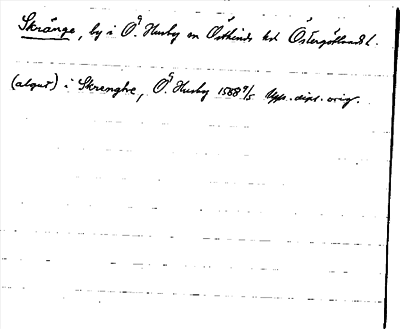 Skränge, by i Ö. Husby sn Östkinds hd Östergötlands l.
(algut) i Skrenghe, Ö. Husby 1508 9/5 Upps. dipl. orig.